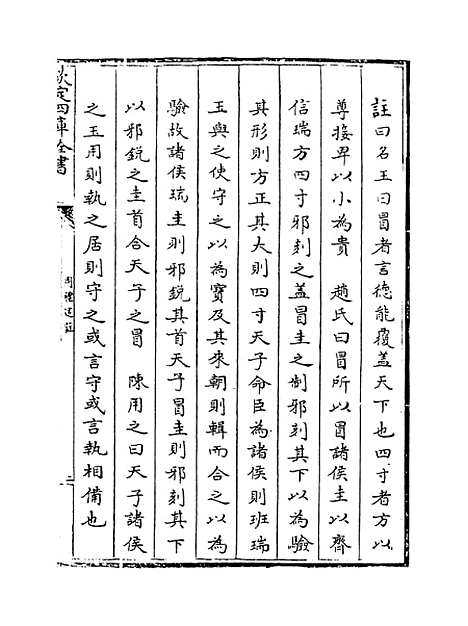 註曰名玉曰冒者言德能覆蓋天下也四寸者方以
尊接卑以小為貴　趙氏曰冒所以冒諸侯圭以齊
信瑞方四寸邪刻之蓋冒圭之制邪刻其下以為驗
其形則方正其大則四寸天子命臣為諸侯則班瑞
玉與之使守之以為寶及其來朝則輯而合之以為
驗故諸侯瑞圭則邪銳其首天子冒圭則邪刻其下
以邪銳之圭首合天子之冒　陳用之曰天子諸侯
之玉用則執之居則守之或言守或言執相備也
欽定四庫全書
周禮述註
二